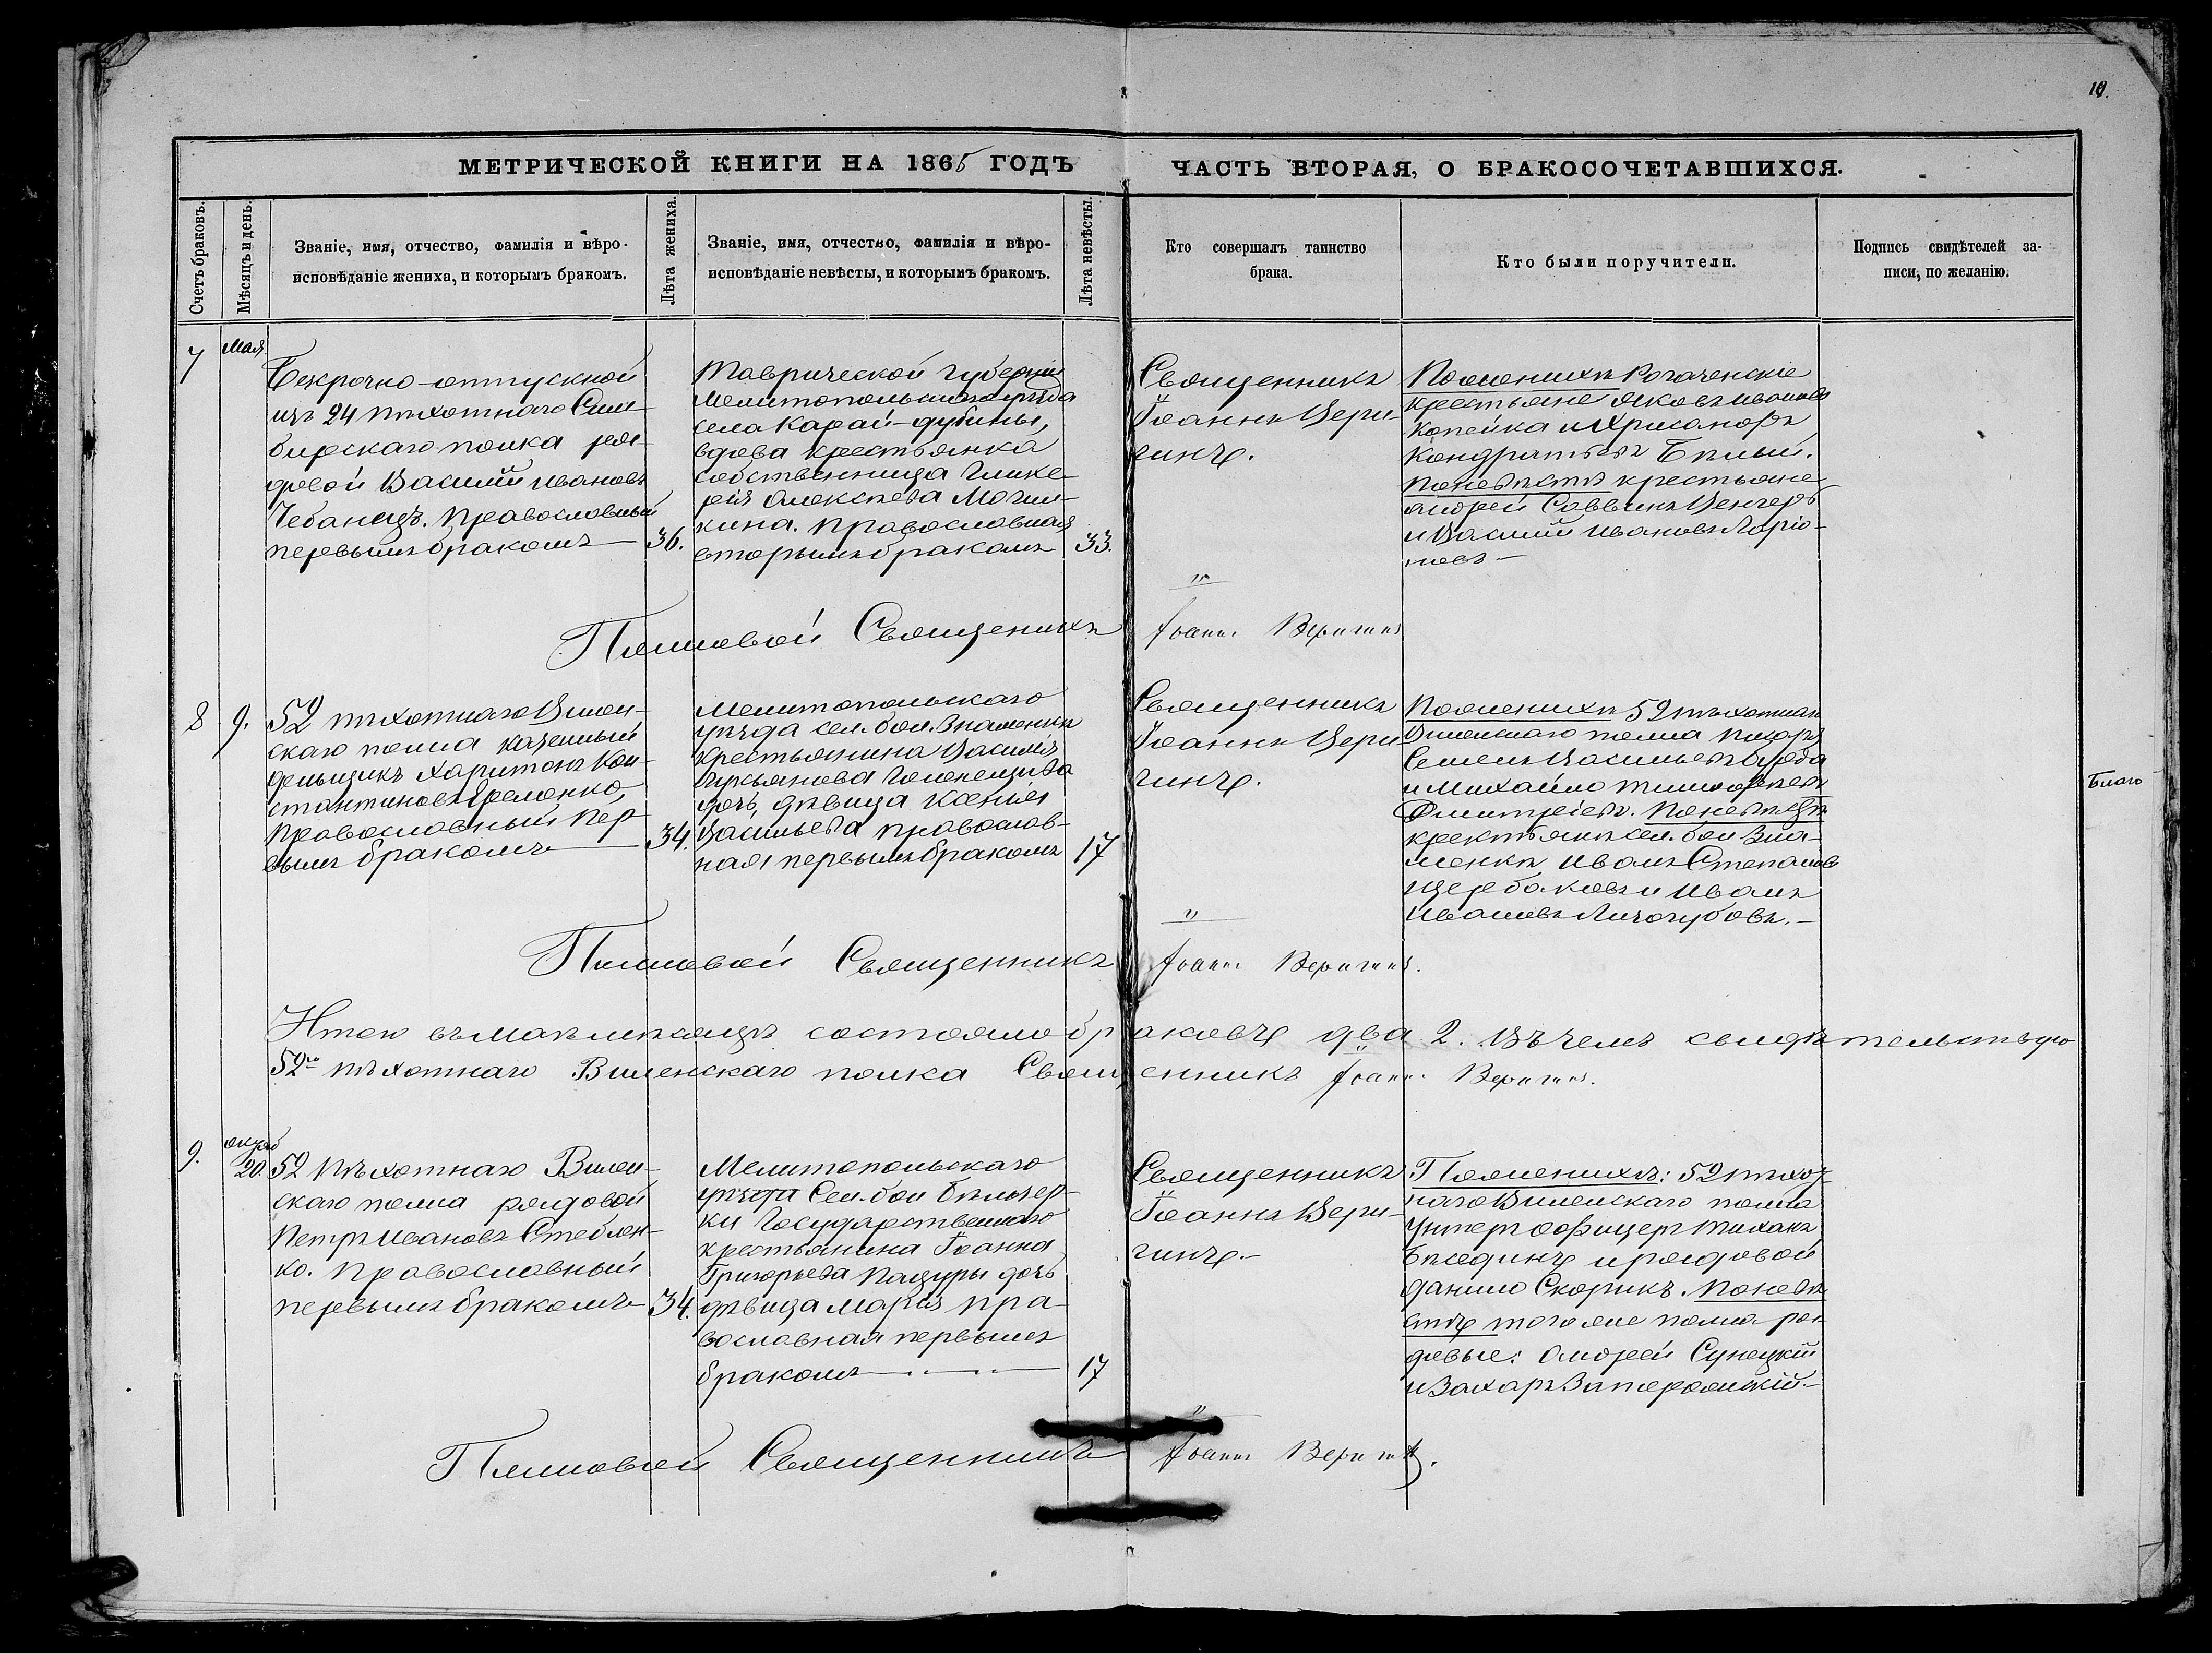 10.
МЕТРИЧЕСКОЙ КНИГИ НА 1865 ГОДЪ
ЧАСТЬ ВТОРАЯ, О БРАКОСОЧЕТАВШИХСЯ.
Счетъ браковъ.
Мѣсяцъ и день.
Званіе, имя, отчество, фамилія и вѣро-
исповѣданіе жениха, и которымъ бракомъ.
Лѣта жениха.
Званіе, имя, отчество, фамилія и вѣро-
исповѣданіе невѣсты, и которымъ бракомъ.
Лѣта невѣсты.
Кто совершалъ таинство
брака.
Кто были поручители.
Подпись свидѣтелей за-
писи, по желанію.
7
Мая
Безсрочно-отпускной
изъ 24 пѣхотнаго Сим-
бирскаго полка ря-
довой Василій Ивановъ
Чебанецъ. Православный
первымъ бракомъ
36.
Таврической губерніи
Мелитопольскаго уѣзда
села Карай-дубины,
вдова крестьянка
собственница Глике-
рія Алексѣева
православная
вторымъ бракомъ
33.
Священникъ
Іоаннъ Вери-
гинъ.
По женихѣ Рогаченскіе
крестьяне Яковъ Ивановъ
Копейка и
Кондратьевъ Бѣлый.
По невѣстѣ крестьяне
Андрей Саввинъ
и Василій Ивановъ Ларіо-
новъ
"
Полковой Священникъ Іоаннъ Веригинъ
8
9.
52 пѣхотнаго Вилен-
скаго полка казенный
деньщикъ Харитонъ Кон-
стантиновъ Еременко,
православный пер-
вымъ бракомъ
34.
Мелитопольскаго
уѣзда сел. бол. Знаменки
крестьянина Василія
Лукьянова
дочь, дѣвица Ксенія
Васильева православ-
ная первымъ бракомъ
17
Священникъ
Іоаннъ Вери-
гинъ.
По женихѣ 52 пѣхотнаго
Виленскаго полка писарь
Семенъ Васильевъ
и Михайло Тимофеевъ
Дмитріевъ. По невѣстѣ
крестьяне сел. бол. Зна-
менки, Иванъ Степановъ
Щербаковъ и Иванъ
Ивановъ Лизогубовъ.
"
Полковой Священникъ Іоаннъ Веригинъ.
Итого въ маѣ мѣсяцѣ состояло браковъ два 2. Въ чемъ свидѣтельствую
52го пѣхотнаго Виленскаго полка Священникъ Іоаннъ Веригинъ.
Благо
9.
октяб
20.
52 пѣхотнаго Вилен-
скаго полка рядовой
Петръ Ивановъ Стеблен-
ко. Православный
первымъ бракомъ
34.
Мелитопольскаго
уѣзда Сел. бол. Бѣлозер-
ки Государственнаго
крестьянина Іоанна
Григорьева Пацуры дочь
дѣвица Марія пра-
вославная первымъ
бракомъ
17
Священникъ
Іоаннъ Вери-
гинъ.
По женихѣ: 52 пѣхот-
наго Виленскаго полка
унтеръ офицеръ Тихонъ
Бѣсединъ и рядовой
Данило Скорикъ. По невѣ-
стѣ того же полка ря-
довые: Андрей Сунецкій
и Захаръ
"
Полковой Священникъ Іоаннъ Веригинъ.